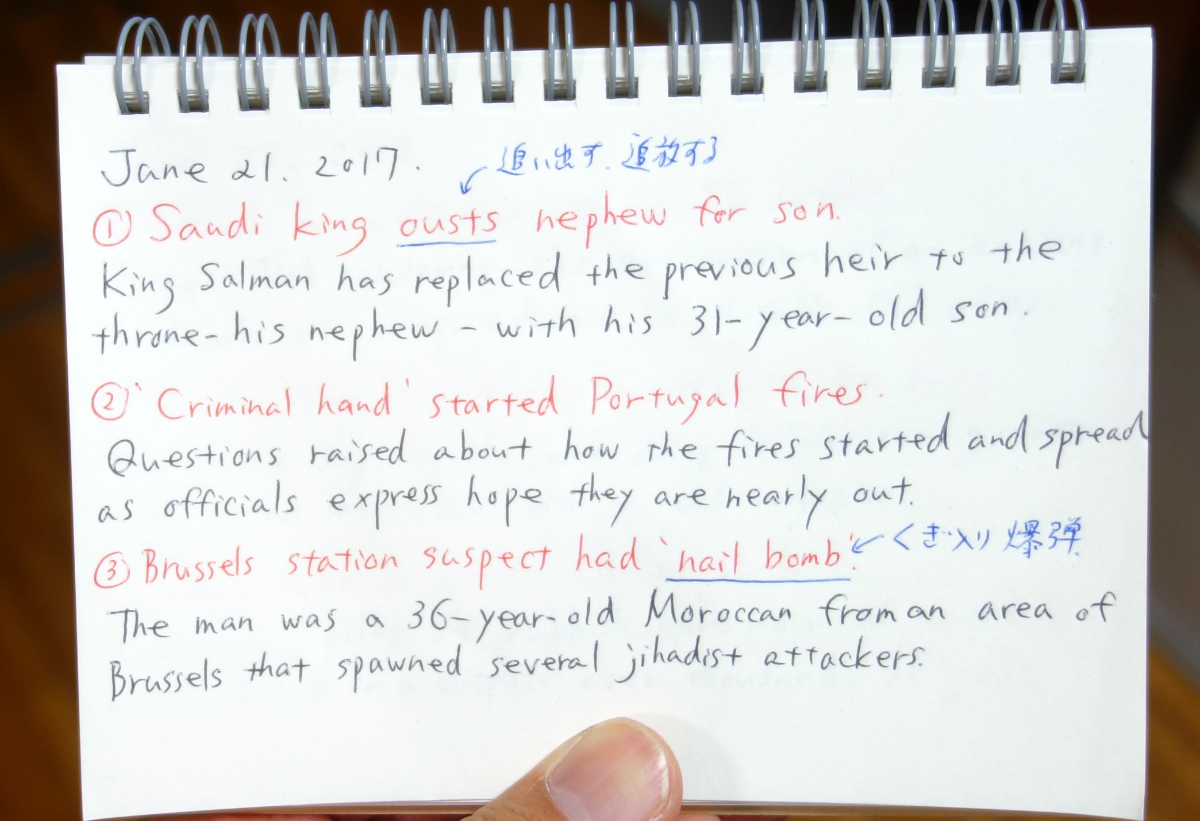 Jane 21. 2017.
追い出す、追放する
① Saudi king ousts nephew for son.
King Salman has replaced the previous heir to the
throne - his nephew - with his 31-year-old son.
② 'Criminal hand' started Portugal fires.
Questions raised about how the fires started and spread
as officials express hope they are nearly out.
③ Brussels station suspect had 'nail bomb'.
くぎ入り爆弾
The man was a 36-year-old Moroccan from an area of
Brussels that spawned several jihadist attackers.